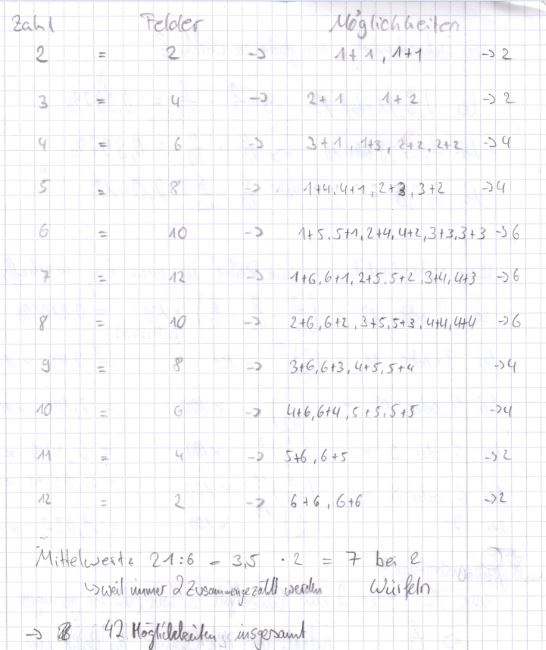 Zahl Felder Möglichkeiten
2 = 2 -> 1+1, 1+1 -> 2
3 = 4 -> 2+1 1+2 -> 2
4 = 6 -> 3+1, 1+3, 2+2, 2+2 -> 4
5 = 8 -> 1+4, 4+1, 2+3, 3+2 -> 4
6 = 10 -> 1+5, 5+1, 2+4, 4+2, 3+3, 3+3 -> 6
7 = 12 -> 1+6, 6+1, 2+5, 5+2, 3+4, 4+3 -> 6
8 = 10 -> 2+6, 6+2, 3+5, 5+3, 4+4, 4+4 -> 6
9 = 8 -> 3+6, 6+3, 4+5, 5+4 -> 4
10 = 6 -> 4+6, 6+4, 5+5, 5+5 -> 4
11 = 4 -> 5+6, 6+5 -> 2
12 = 2 -> 6+6, 6+6 -> 2
Mittelwert: 21:6 = 3,5 · 2 = 7 bei 2
↳ weil immer 2 zusammengezählt werden Würfeln
-> 42 Möglichkeiten insgesamt